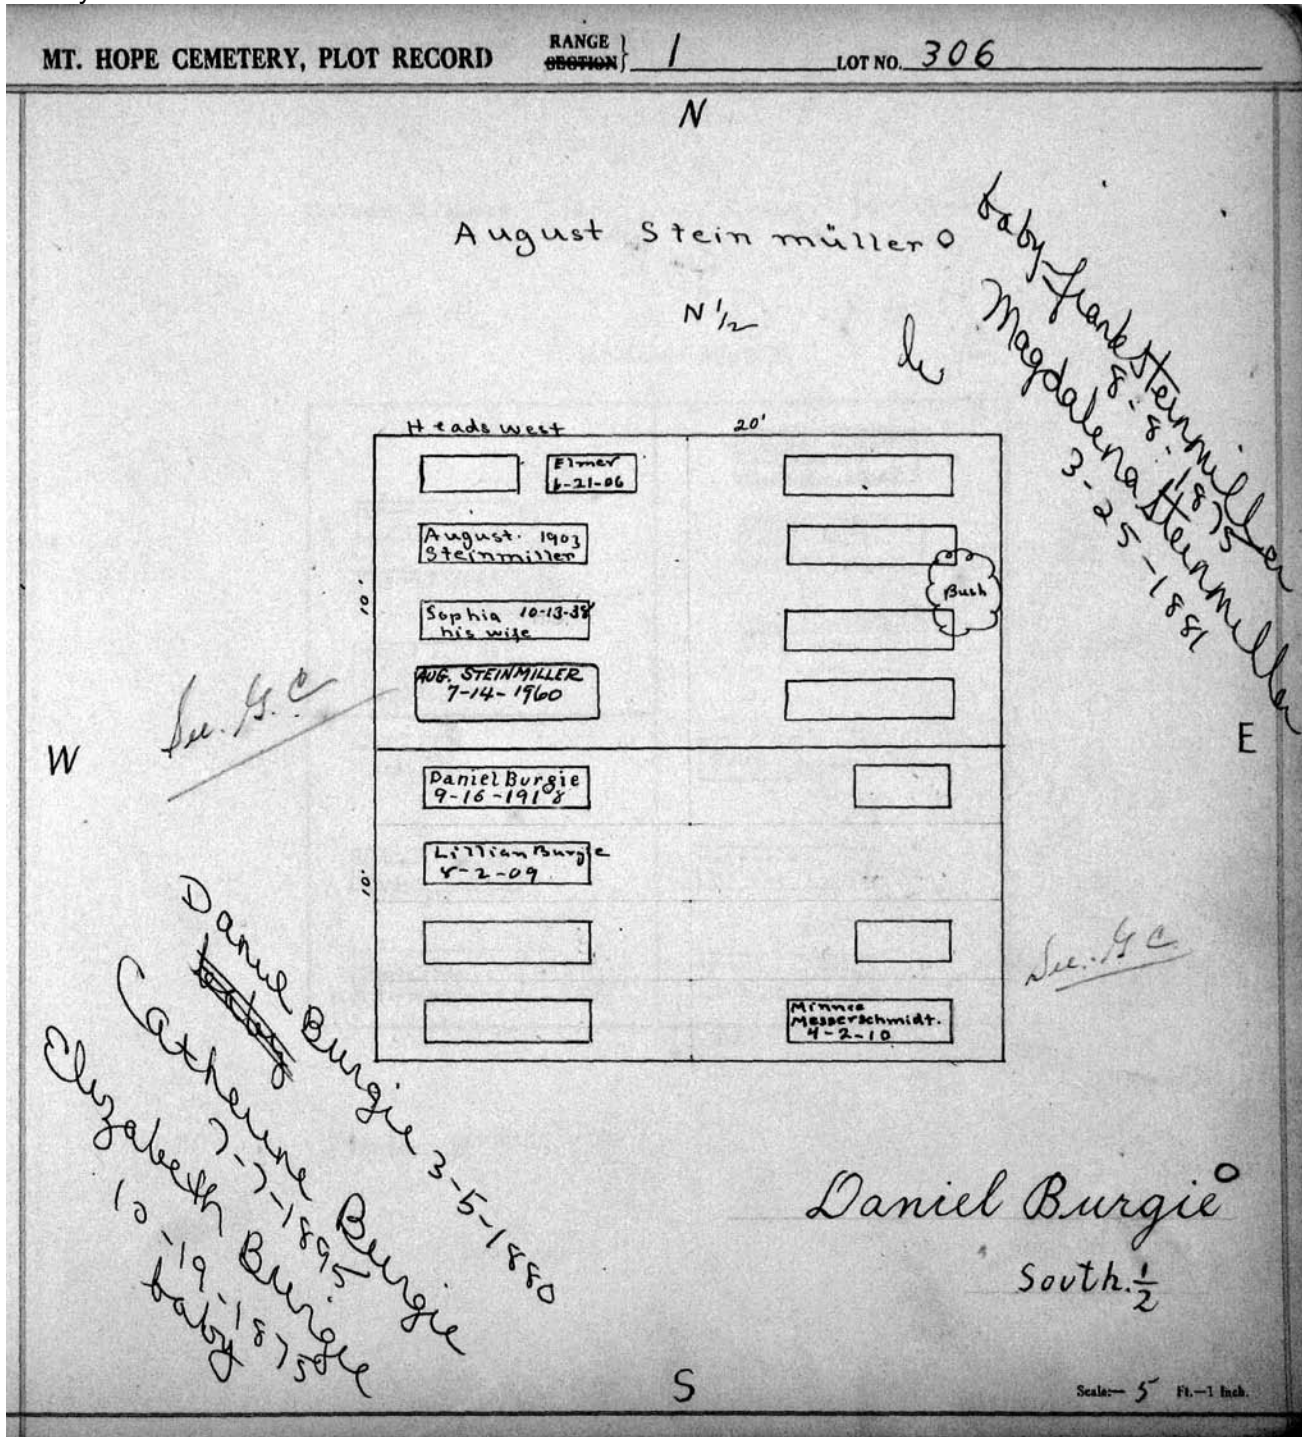 MT. HOPE CEMETERY, PLOT RECORD RANGE SECTION } 1 LOT NO. 306
N
August Steinmüller
N 1/2
baby - Frank Steinmiller
8-8-1875
Magdalena Steinmiller
3-25-1881
Heads west 20'
Elmer
6-21-06
August. 1903
Steinmiller
10'
Bush
Sophia 10-13-38
his wife
AUG. STEINMILLER
7-14-1960
See. G. C
W
E
Daniel Burgie
9-16-1918
Lillian Burgie
8-2-09
10'
See. G C.
Minnie
Messerschmidt.
4-2-10
Daniel Burgie 3-5-1880
baby
Catherine Burgie
7-7-1895
Elizabeth Burgie
10-19-1875
baby
Daniel Burgie
South. 1/2
S
Scale:— 5 Ft.—1 Inch.